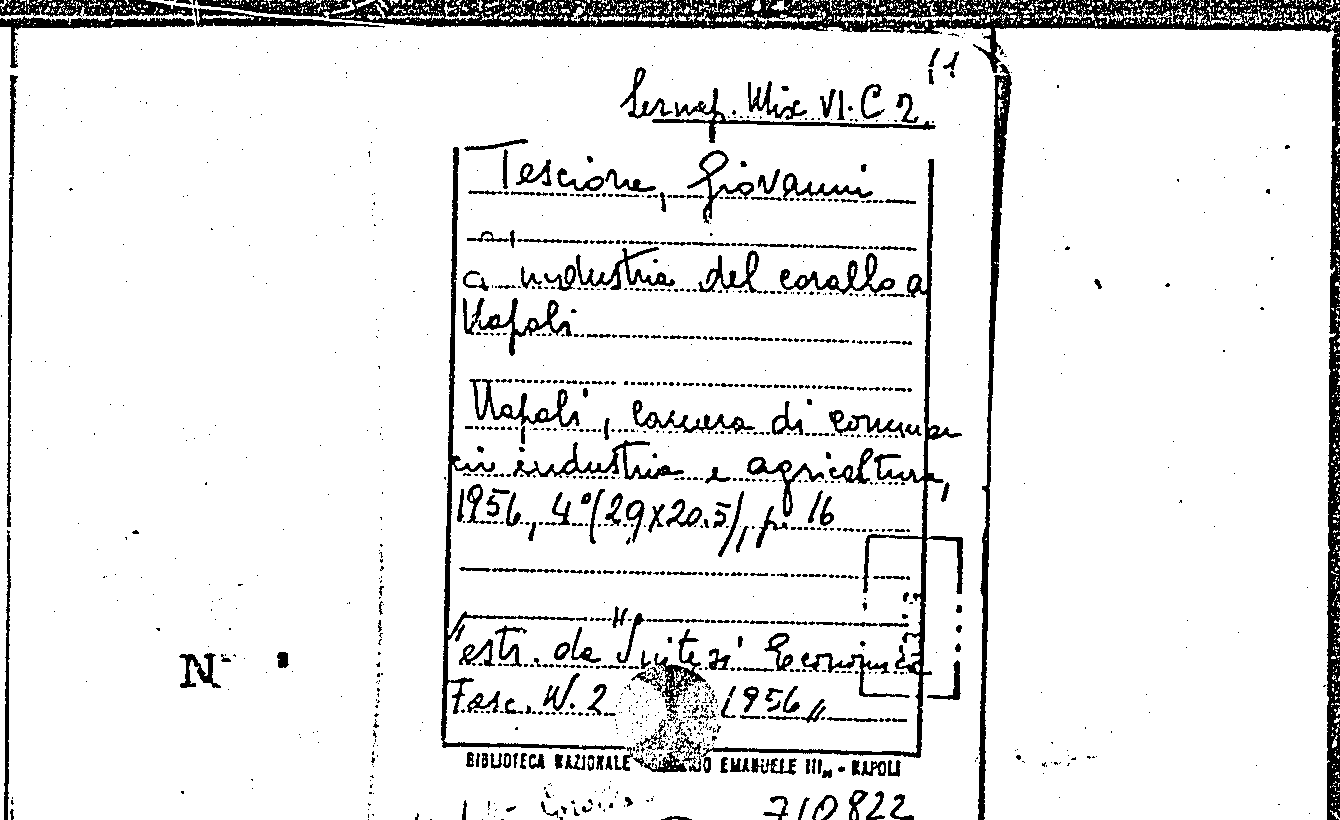 (1
Sernap. Mix VI. C 2
Tescione, Giovanni
a industria del corallo a
Napoli
Napoli, camera di commer
cio industria e agricoltura,
1956, 4° (29x20.5), p. 16
"estr. da "Sintesi Economica
Fasc. N. 2 1956"
N
BIBLIOTECA NAZIONALE EMANUELE III„ - NAPOLI
710822